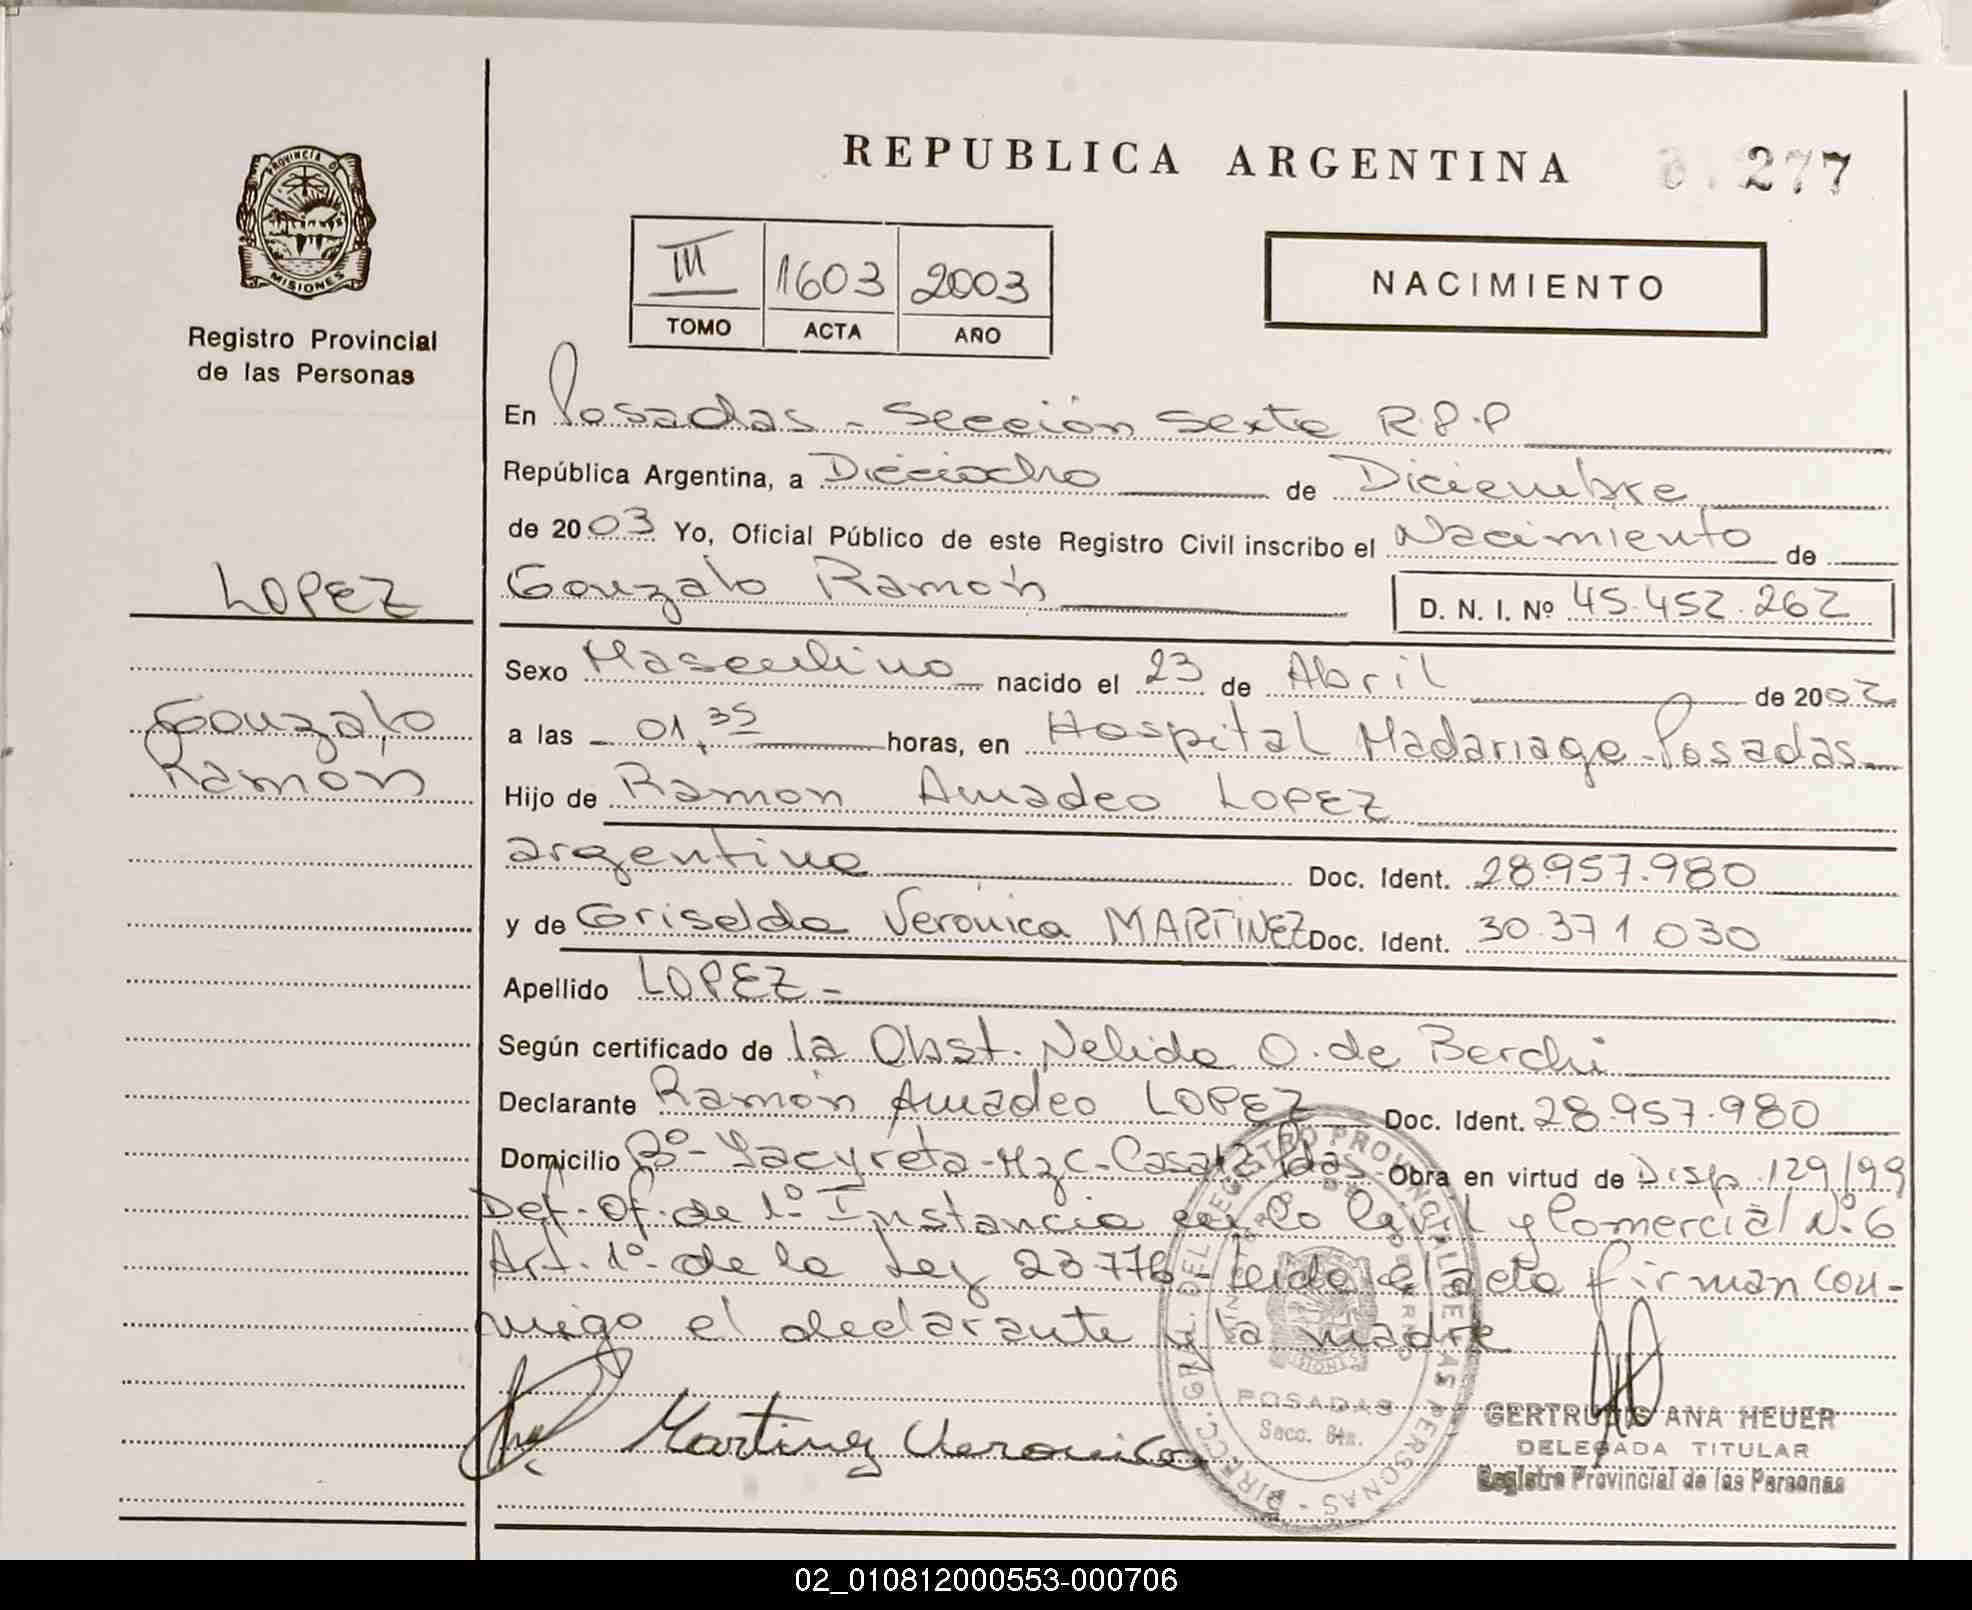 REPUBLICA ARGENTINA
277
PROVINCIA DE
MISIONES
Registro Provincial
de las Personas
III 1603 2003
TOMO ACTA AÑO
NACIMIENTO
En Posadas - Sección Sexta R.P.P
República Argentina, a Dieciocho de Diciembre
de 2003 Yo, Oficial Público de este Registro Civil inscribo el Nacimiento de
LOPEZ
Gonzalo Ramón D. N. I. Nº 45.452.262
Sexo Masculino nacido el 23 de Abril de 2002
Gonzalo
Ramón
a las 01,35 horas, en Hospital Madariaga - Posadas
Hijo de Ramon Amadeo LOPEZ
argentino Doc. Ident. 28.957.980
y de Griselda Verónica MARTINEZ Doc. Ident. 30.371.030
Apellido LOPEZ -
Según certificado de la Obst. Nelida O. de Berchi
Declarante Ramón Amadeo LOPEZ Doc. Ident. 28.957.980
Domicilio Bº - Yacyreta - Mz C - Casa Pdas. Obra en virtud de Disp. 129/99
Def. Of. de 1º Instancia en lo Civil y Comercial Nº 6
Art. 1º de la Ley 23.776 - Leida el acta firman con-
migo el declarante y la madre
Martinez Veronica
DIRECC. GRAL. DEL REGISTRO PROVINCIAL DE LAS PERSONAS
MISIONES
POSADAS
Secc. 6ta.
GERTRUDIS ANA HEUER
DELEGADA TITULAR
Registro Provincial de las Personas
02_010812000553-000706